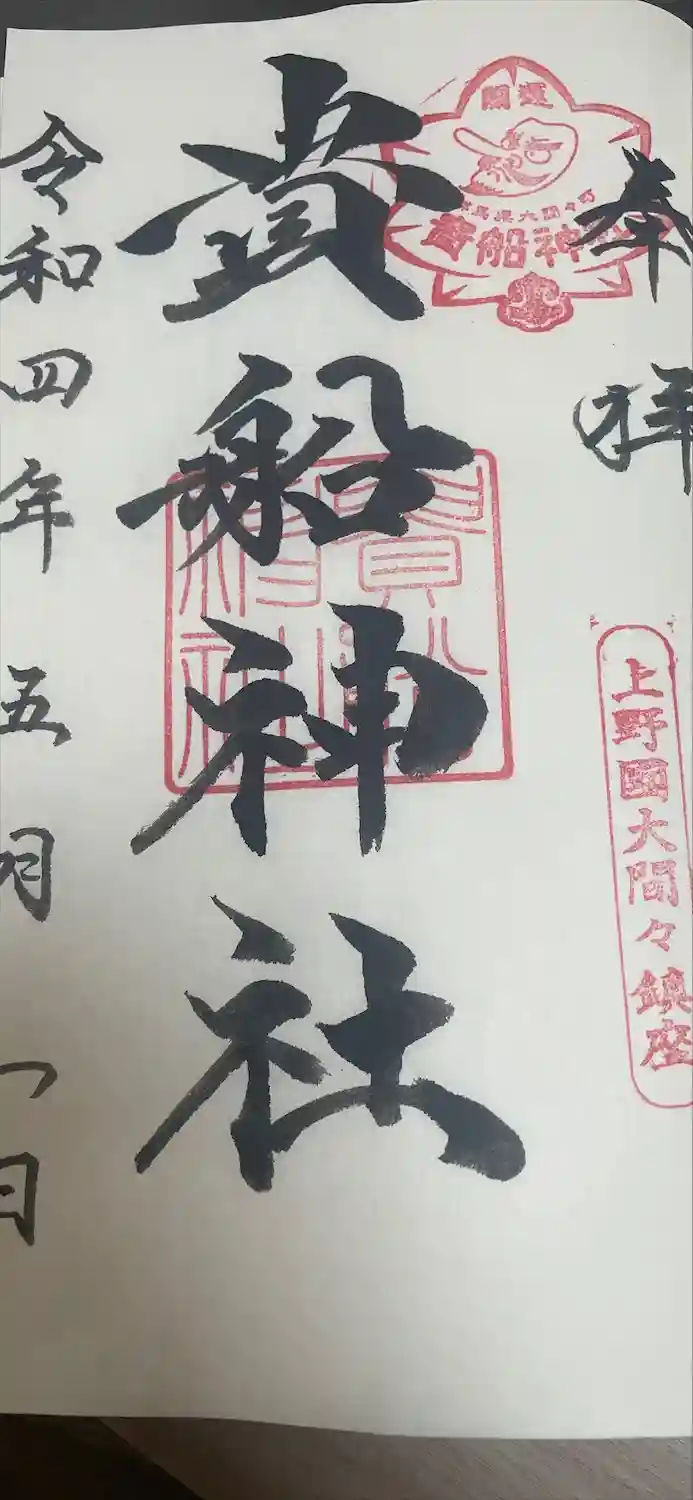 奉拝
開運
群馬県大間々町
貴船神社
上野國大間々鎮座
貴船神社
貴船神社
令和四年五月一日